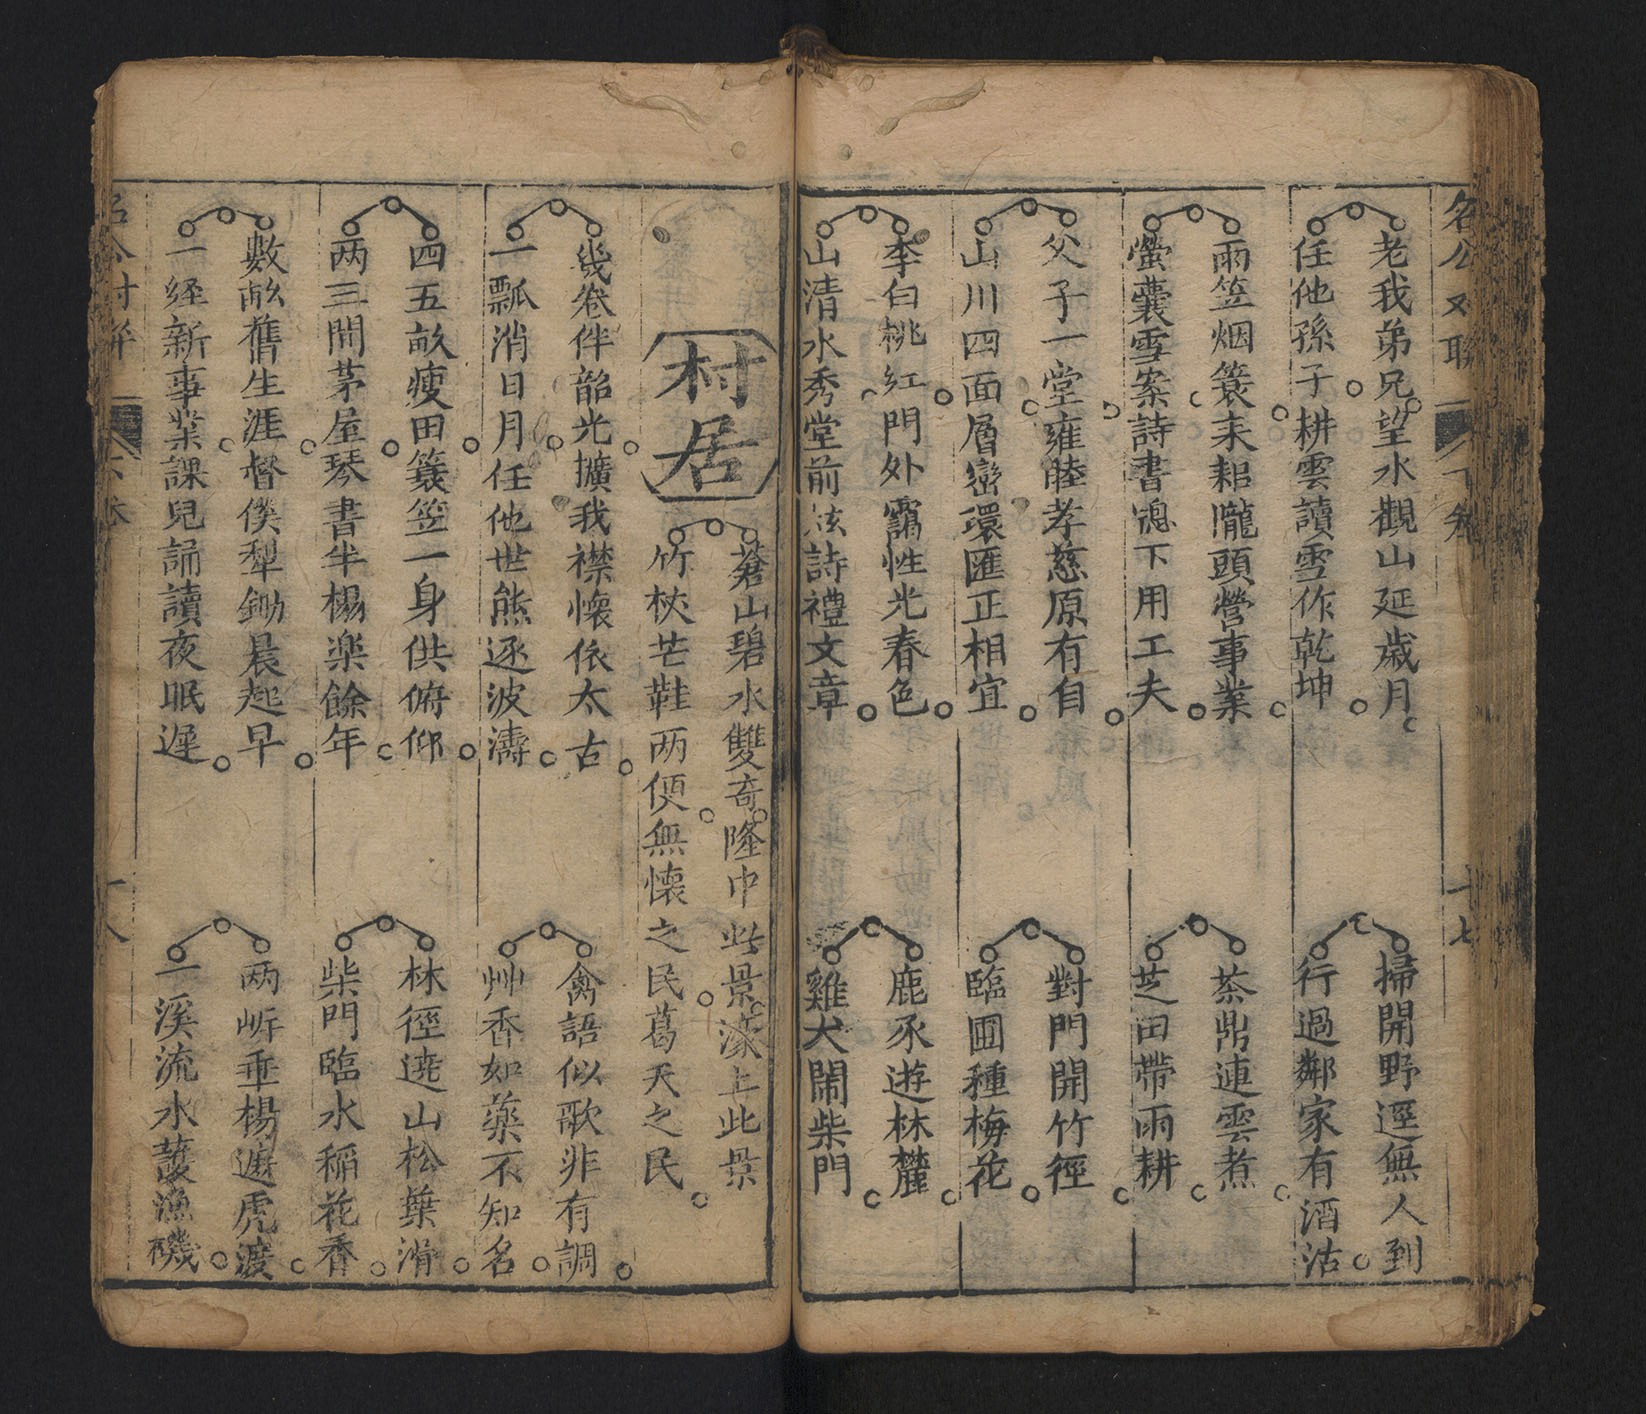 名公对聯 下卷 十七
老我弟兄望水觀山延歲月
任他孫子耕雲讀雪作乾坤
掃開野逕無人到
行過鄰家有酒沽
雨笠烟簑耒耜隴頭營事業
螢囊雪案詩書窓下用工夫
茶鼎連雲煮
芝田帶雨耕
父子一堂雍睦孝慈原有自
山川四面層巒環匯正相宜
對門開竹徑
臨圃種梅花
李白桃紅門外靄性光春色
山清水秀堂前泫詩禮文章
鹿豕遊林麓
雞犬鬧柴門
村居
蒼山碧水雙奇隆中此景濠上此景
竹杖芒鞋两便無懷之民葛天之民
幾卷伴韶光擴我襟懷依太古
一瓢消日月任他世態逐波濤
禽語似歌非有調
艸香如藥不知名
四五畝瘦田簑笠一身供俯仰
两三間茅屋琴書半榻楽餘年
林徑遶山松葉滑
柴門臨水稲花香
數畝舊生涯督僕犁鋤晨起早
一経新事業課兒誦讀夜眠遲
两岍垂楊遮虎渡
一溪流水護漁磯